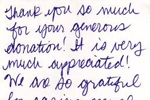 Thank you so much
for your generous
donation! It is very
much appreciated!
We so so grateful
for